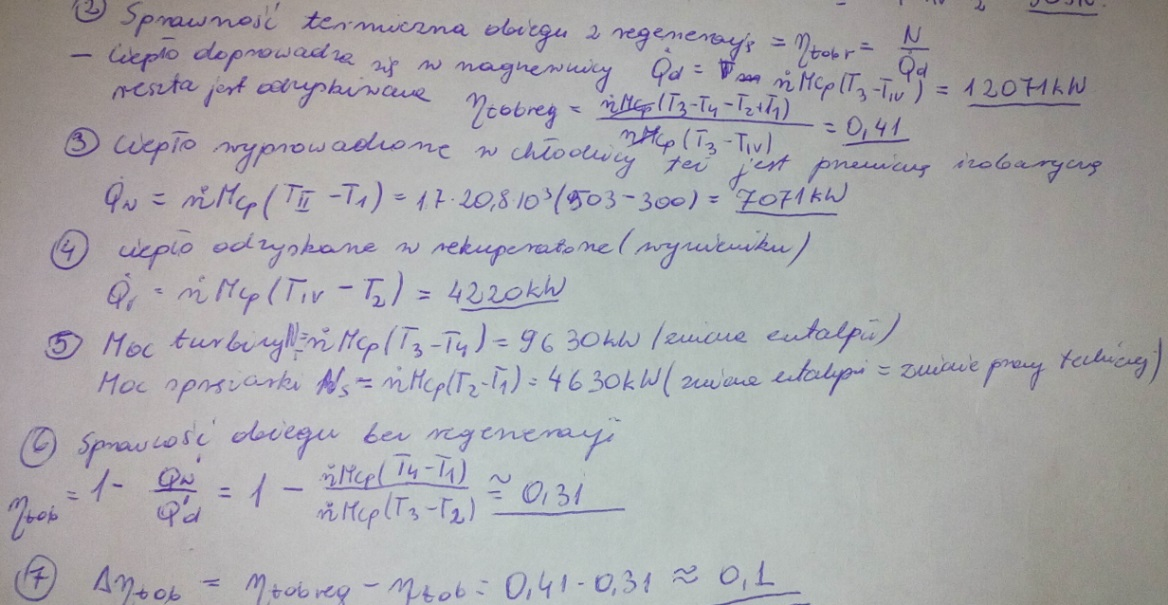 ② Sprawność termiczna obiegu z regeneracją = ηtobr = N/Q̇d
- Ciepło doprowadza się w nagrzewnicy Q̇d = ṅMcp(T3-TIV) = 12071kW
reszta jest odzyskiwana ηtobreg = ṅMcp(T3-T4-T2+T1) / ṅMcp(T3-TIV) = 0,41
③ Ciepło wyprowadzone w chłodnicy też jest przemianą izobaryczną
Q̇w = ṅMcp(TII-T1) = 1,7·20,8·10³(503-300) = 7071kW
④ ciepło odzyskane w rekuperatorze (wymienniku)
Q̇r = ṅMcp(TIV-T2) = 4220kW
⑤ Moc turbiny NT=ṅMcp(T3-T4) = 9630kW (zmiana entalpii)
Moc sprężarki Ns = ṅMcp(T2-T1) = 4630kW (zmiana entalpii = zmianie pracy technicznej)
⑥ Sprawność obiegu bez regeneracji
ηtob = 1 - Q̇w/Q̇'d = 1 - ṅMcp(T4-T1) / ṅMcp(T3-T2) ≅ 0,31
⑦ Δηtob = ηtobreg - ηtob = 0,41-0,31 ≈ 0,1